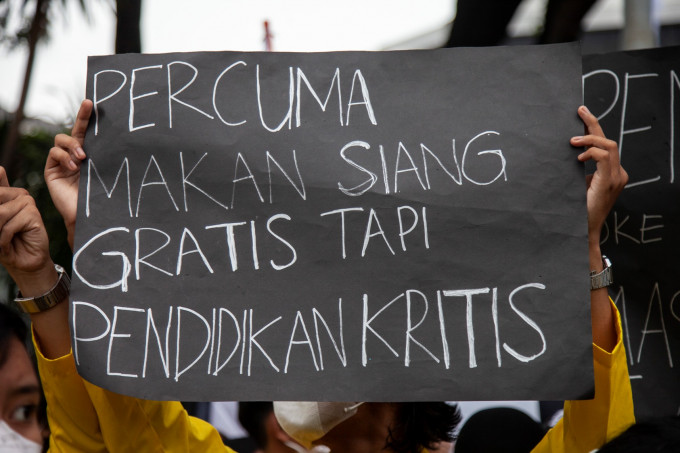 PERCUMA
MAKAN SIANG
GRATIS TAPI
PENDIDIKAN KRITIS